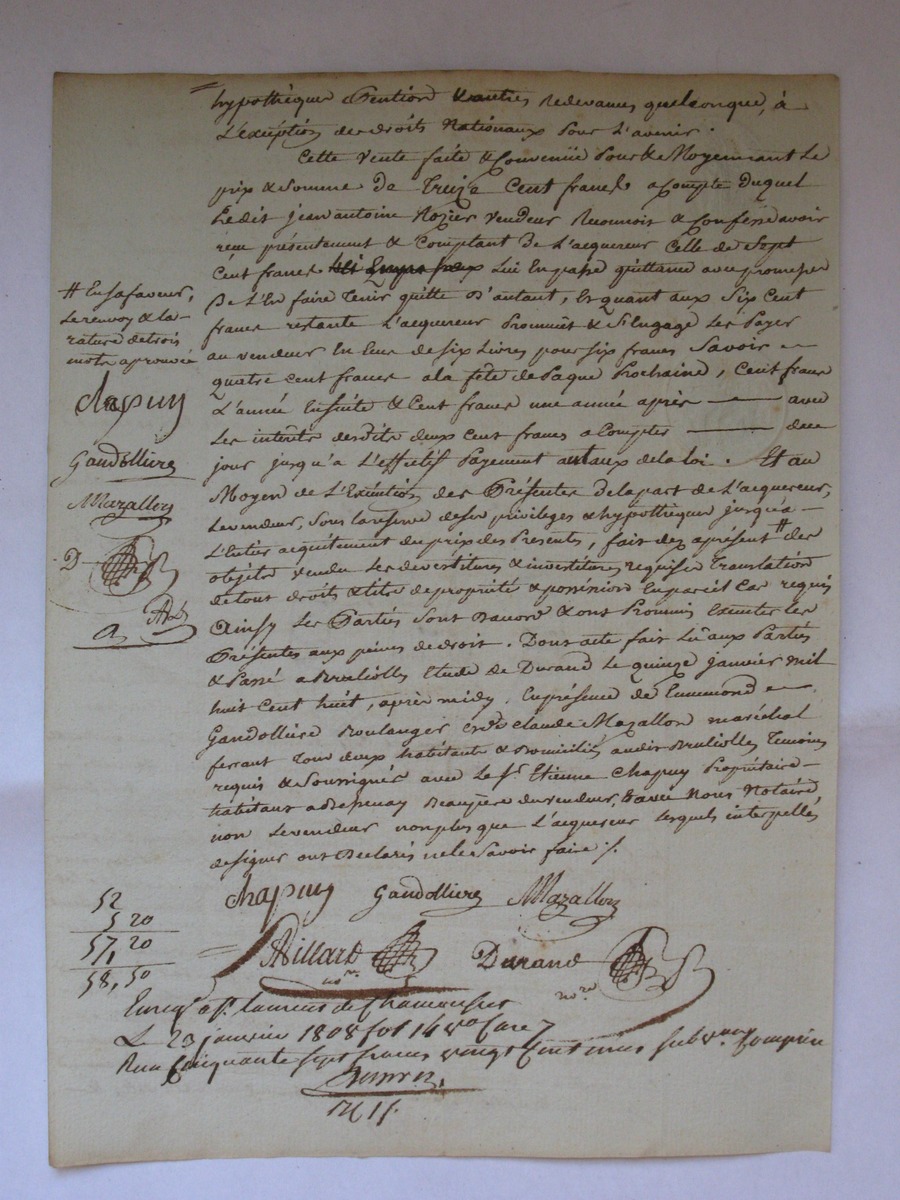 hypothèques pention & autres Redevances quelconque, à
L'exeption des droits Nationaux pour L'avenir.
Cette vente faite & Convenüe pour & Moyennant Le
prix & Somme De Treize Cent francs a Compte duquel
Ledit jean antoine Rozier vendeur Reconnoit & Confesse avoir
recu présentement & Comptant De L'acquereur Celle de Sept
Cent francs Lui En passe quittance avec promesse
De L'en faire Tenir quitte D'autant, Et quant aux Six Cent
francs restants L'acquereur Prommêt & S'Engage Les Payer
au vendeur En Ecus de six Livres pour six francs Savoir
Quatre cent francs a la fête de Paque Prochaine, Cent francs
L'année Ensuite & Cent francs une année après avec
Les intérêts desdits deux cent francs a Compter de ce
jour jusqu'a L'effectif Payement au taux de la loi. Et au
Moyen de L'Exécution des Présentes De la part de L'acquereur,
Le vendeur, Sous la reserve de ses privileges & hypothèques jusqu'a
L'Entier acquittement du prix des Presentes, fait dez aprésent # des
objets vendu Les devestitures & investitures requises Translation
de tout droits & titre de propriété & possession En pareil Cas requis
Ainsy Les Parties Sont Daccord & ont Promis Executer les
Présentes aux peines de droit. Dont acte fait Lû aux Parties
& Passé a Brulliolles Etude de Durand Le quinze janvier mil
huit Cent huit, après midy. En présence de Ennemond
Gandollière Boulanger & de Claude Mazallon maréchal
ferrant Tous deux habitants & Domiciliés audit Brulliolles Temoins
requis & Soussignés avec Le Sr. Etienne Chapuy Propriétaire
habitant a Bessenay Beaupère du vendeur, & avec Nous Notaire
non Le vendeur non plus que L'acquereur Lesquels interpellés
de signer ont Déclarés ne le Savoir faire /.
# En sa faveur,
Le renvoy & la
rature de trois
mots aprouvée
Chapuy
Gandollière
Mazallon
D
Chapuy Gandollière Mazallon
Durand
nore
52
5 20
57, 20
58, 50
Enreg. a St. laurent de Chamousset
Le 23 janvier 1808 fol 14 vo Case 7
Recu Cinquante sept francs vingt Centimes Subvon Comprise